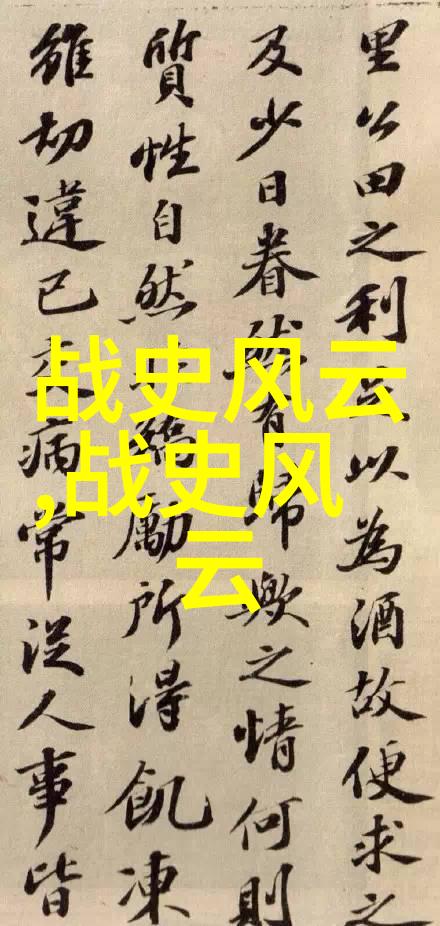 里公田之利以為酒故便求之
及少日眷然有歸歟之情何則
質性自然矯勵所得飢凍
雖切違己交病常從人事皆
战史风云
,战史风
云